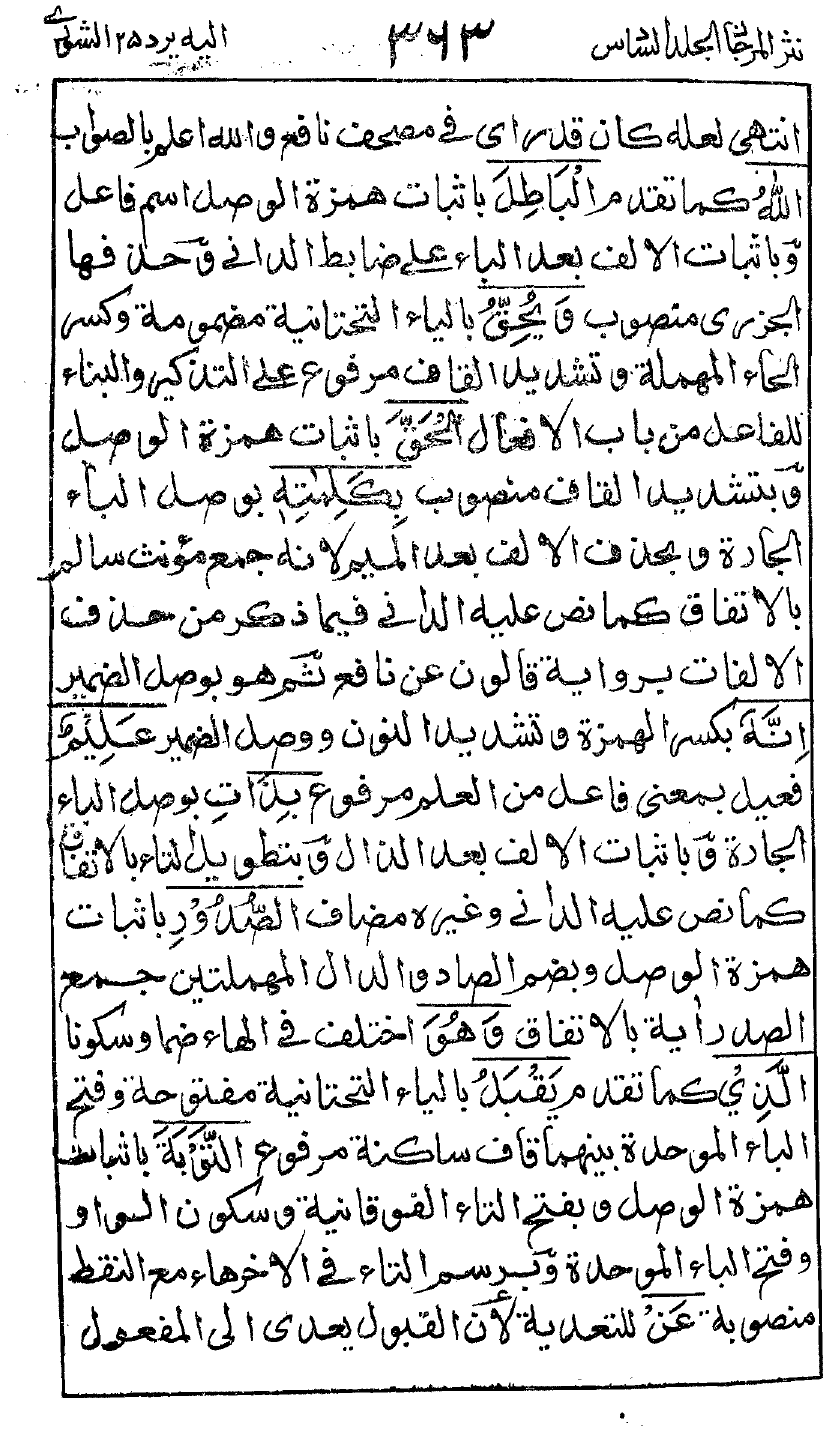 نثر المرجان المجلد السادس ٣٦٣ اليه يرد ٢٥ الشورى
انتهى لعله كان قد راى في مصحف نافع والله اعلم بالصواب
اللهُ كما تقدم الْبَاطِلَ باثبات همزة الوصل اسم فاعل
وباثبات الالف بعد الباء على ضابط الداني وحذفها
الجزرى منصوب وَيُحِقُّ بالياء التحتانية مضمومة وكسر
الحاء المهملة وتشديد القاف مرفوع على التذكير والبناء
للفاعل من باب الافعال الْحَقَّ باثبات همزة الوصل
وبتشديد القاف منصوب بِكَلِمٰتِهٖ بوصل الباء
الجارة وبحذف الالف بعد الميم لانه جمع مؤنث سالم
بالاتفاق كما نص عليه الداني فيما ذكر من حذف
الالفات برواية قالون عن نافع ثم هو بوصل الضمير
اِنَّهٗ بكسر الهمزة وتشديد النون ووصل الضمير عَلِيْمٌ
فعيل بمعنى فاعل من العلم مرفوع بِذَاتِ بوصل الباء
الجارة وباثبات الالف بعد الذال وبتطويل التاء بالاتفاق
كما نص عليه الداني وغيره مضاف الصُّدُوْرِ باثبات
همزة الوصل وبضم الصاد والدال المهملتين جمع
الصدر أية بالاتفاق وَهُوَ اختلف في الهاء ضما وسكونا
الَّذِيْ كما تقدم يَقْبَلُ بالياء التحتانية مفتوحة وفتح
الباء الموحدة بينهما قاف ساكنة مرفوع التَّوْبَةَ باثبات
همزة الوصل وبفتح التاء الفوقانية وسكون الواو
وفتح الباء الموحدة وبرسم التاء في الاخرهاء مع النقط
منصوبة عَنْ للتعدية لأن القبول يعدى الى المفعول